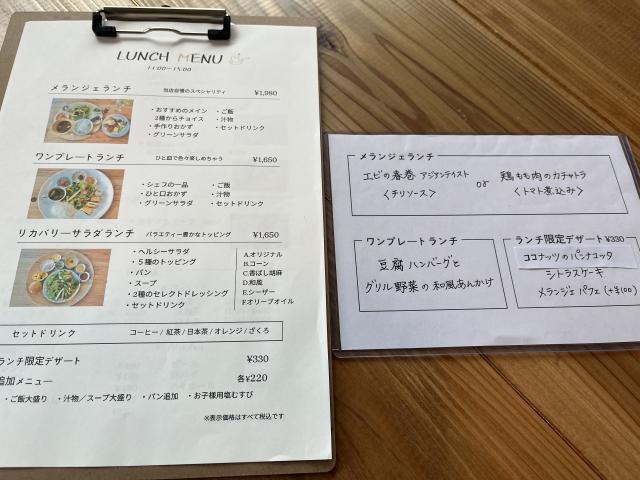 LUNCH MENU
11:00~15:00
メランジェランチ 当店自慢のスペシャリティ ¥1,980
・おすすめのメイン
2種からチョイス
・手作りおかず
・グリーンサラダ
・ご飯
・汁物
・セットドリンク
ワンプレートランチ ひと皿で色々楽しめちゃう ¥1,650
・シェフの一品
・ひと口おかず
・グリーンサラダ
・ご飯
・汁物
・セットドリンク
リカバリーサラダランチ バラエティー豊かなトッピング ¥1,650
・ヘルシーサラダ
・5種のトッピング
・パン
・スープ
・2種のセレクトドレッシング
・セットドリンク
A.オリジナル
B.コーン
C.香ばし胡麻
D.和風
E.シーザー
F.オリーブオイル
セットドリンク コーヒー/紅茶/日本茶/オレンジ/ざくろ
ランチ限定デザート ¥330
追加メニュー 各¥220
・ご飯大盛り ・汁物/スープ大盛り ・パン追加 ・お子様用塩むすび
※表示価格はすべて税込です
メランジェランチ
エビの春巻 アジアンテイスト
〈チリソース〉
or
鶏もも肉のカチャトラ
〈トマト煮込み〉
ワンプレートランチ
豆腐ハンバーグと
グリル野菜の和風あんかけ
ランチ限定デザート ¥330
ココナッツのパンナコッタ
シトラスケーキ
メランジェパフェ(+¥100)